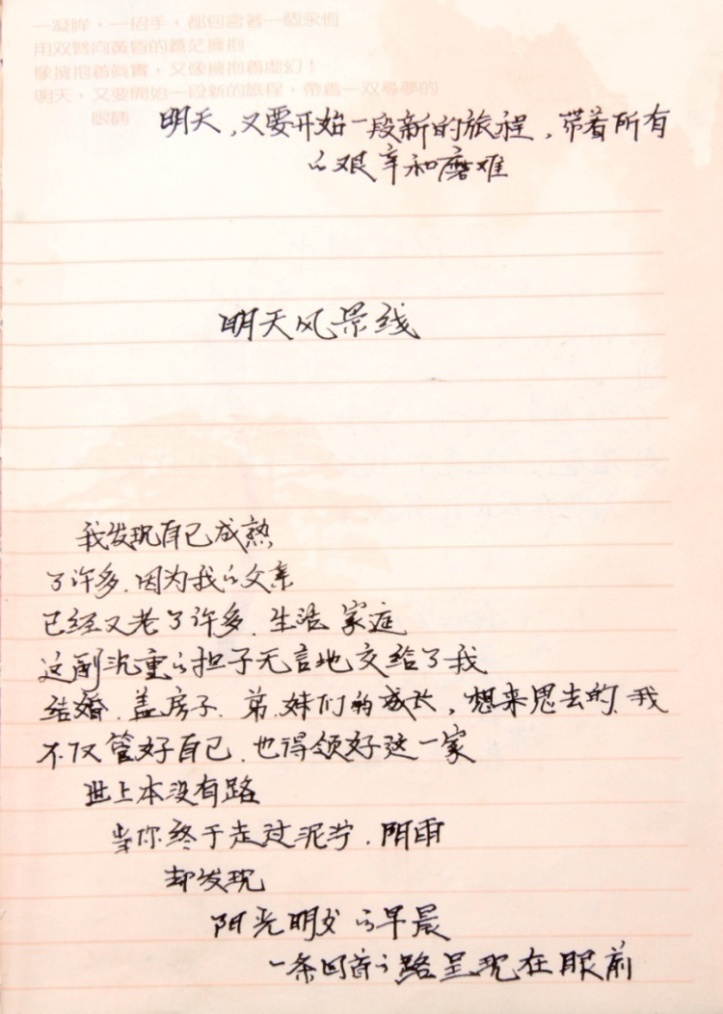 一凝眸，一招手，都包含著一個永恒
用双臂向黄昏的蒼茫擁抱
像擁抱着真實，又像擁抱着虛幻！
明天，又要開始一段新的旅程，帶着一双尋夢的
眼睛
明天，又要开始一段新的旅程，带着所有
的艰辛和磨难
明天风景线
我发现自己成熟
了许多.因为我的父亲
已经又老了许多.生活.家庭
这副沉重的担子无言地交给了我
结婚.盖房子.弟.妹们的成长，想来思去的.我
不仅管好自己.也得领好这一家
世上本没有路
当你终于走过泥泞.阴雨
却发现
阳光明媚的早晨
一条回首之路呈现在眼前